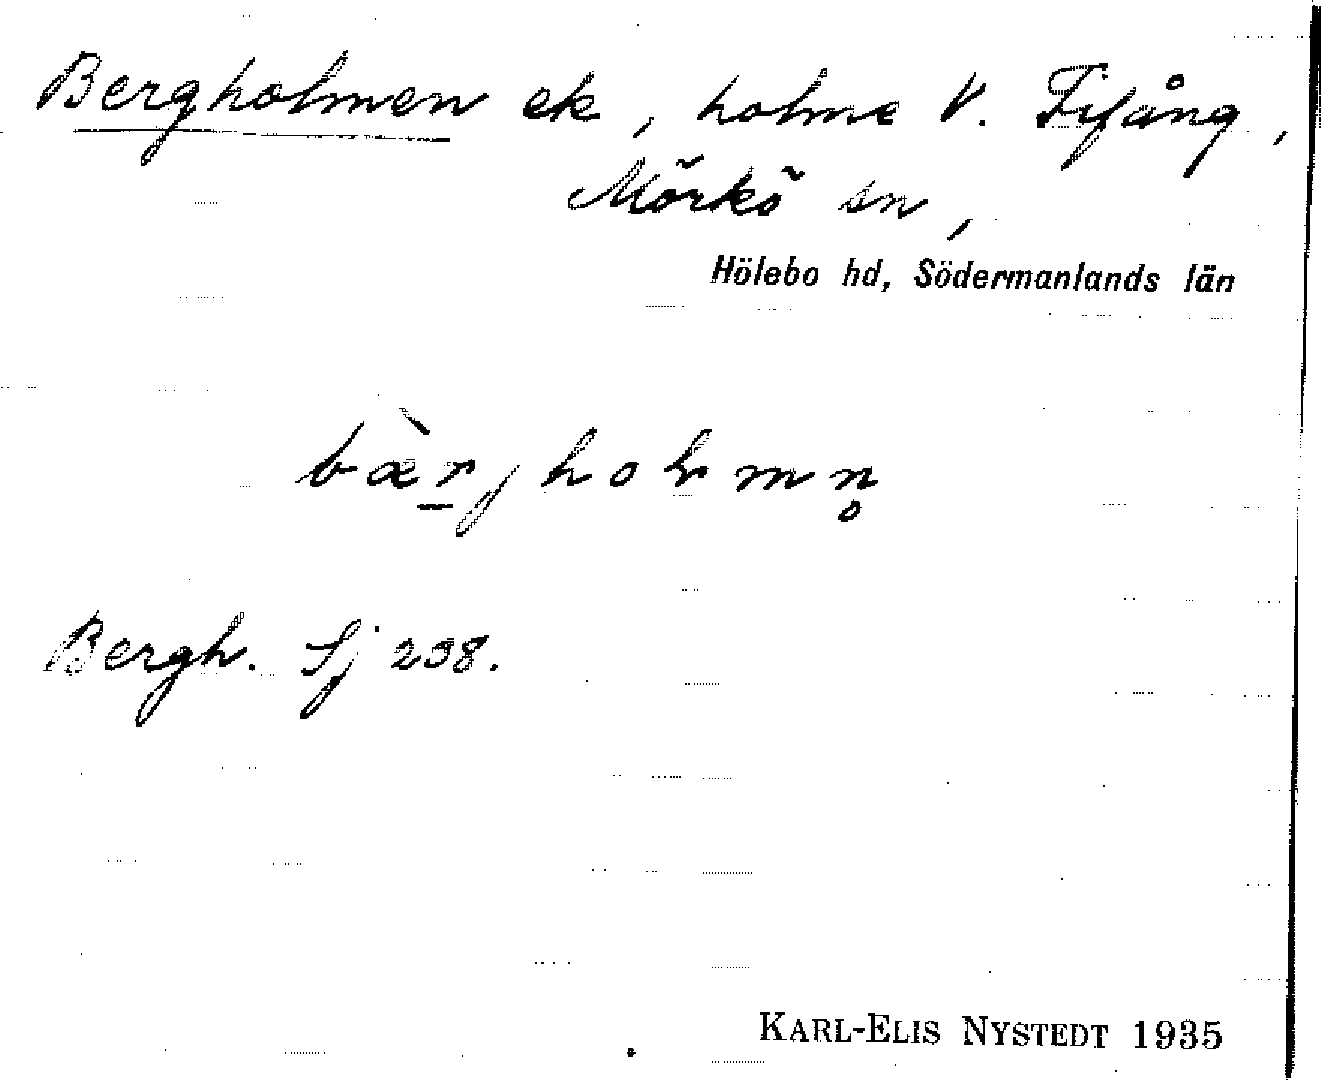 Bergholmen ek, holme V. Fifång,
Mörkö sn,
Hölebo hd, Södermanlands län
bær̲jholmn̥
Bergh. Sj 238.
KARL-ELIS NYSTEDT 1935